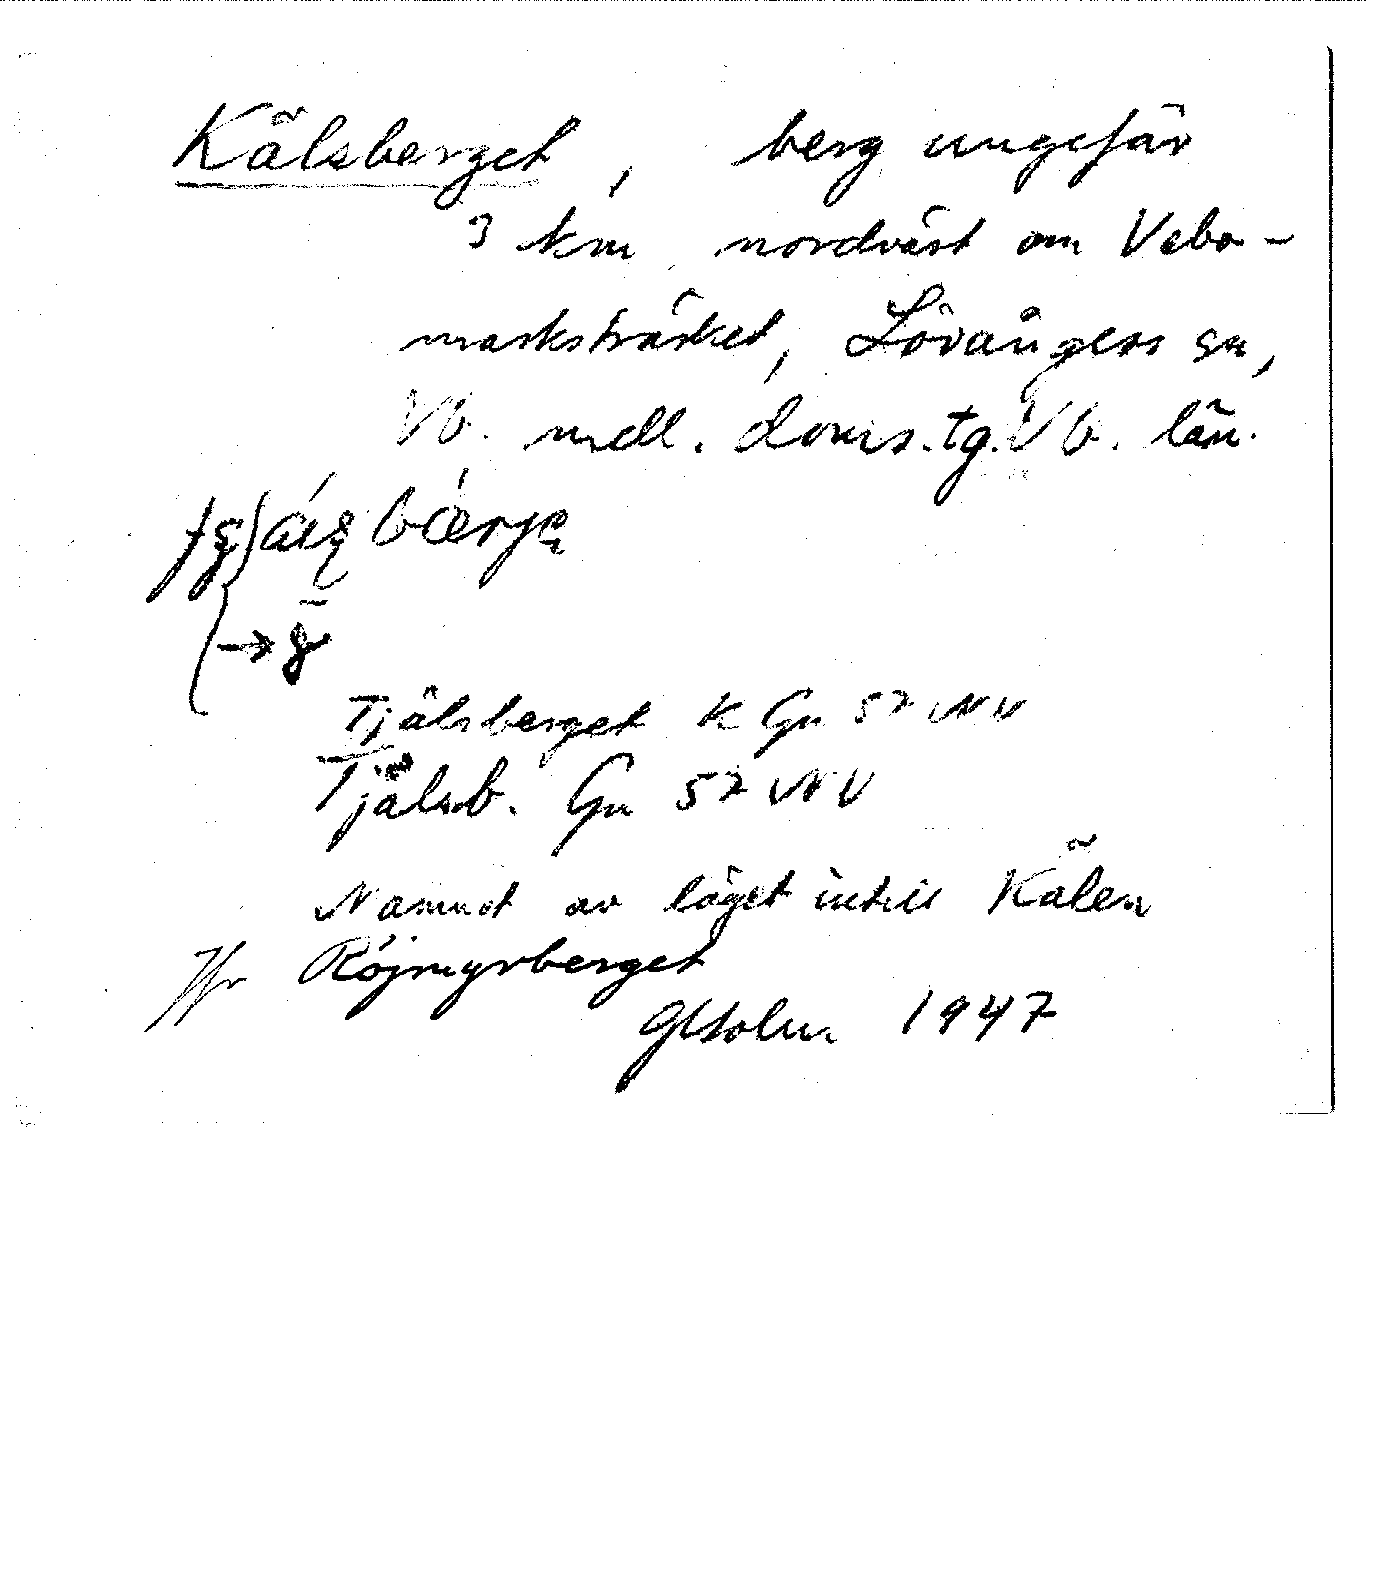 Kälsberget, berg ungefär
3 km nordväst om Vebo-
marksträsket, Lövångers sn,
Vb. mell. doms. tg. Vb. län.
Tjälsberget K Gn 52 NV
Tjälsb. Gn 52 NV
Namnet av läget intill Kälen
Jfr Röjmyrberget
GHolm 1947